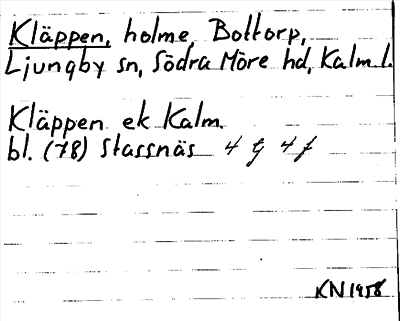 Kläppen, holme, Bottorp,
Ljungby sn, Södra Möre hd, Kalm. l.
Kläppen ek Kalm.
bl. (78) Stassnäs 4 g 4 f
KN 1958